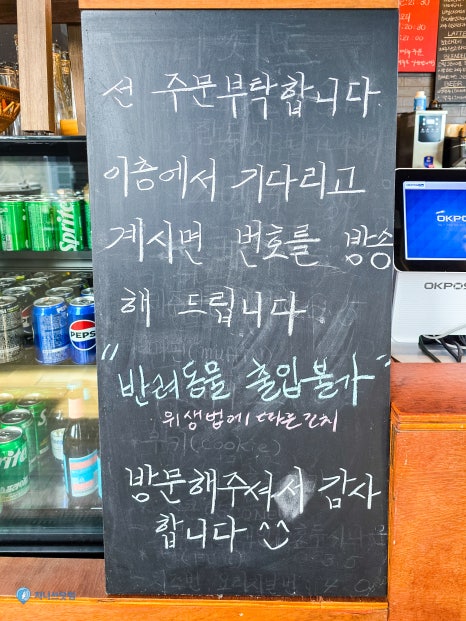 선 주문부탁합니다.
이층에서 기다리고
계시면 번호를 방송
해 드립니다.
"반려동물 출입불가"
위생법에 따른 조치
방문해주셔서 감사
합니다
Sprite
PEPSI
OKPOS
OKPOS
LATTE